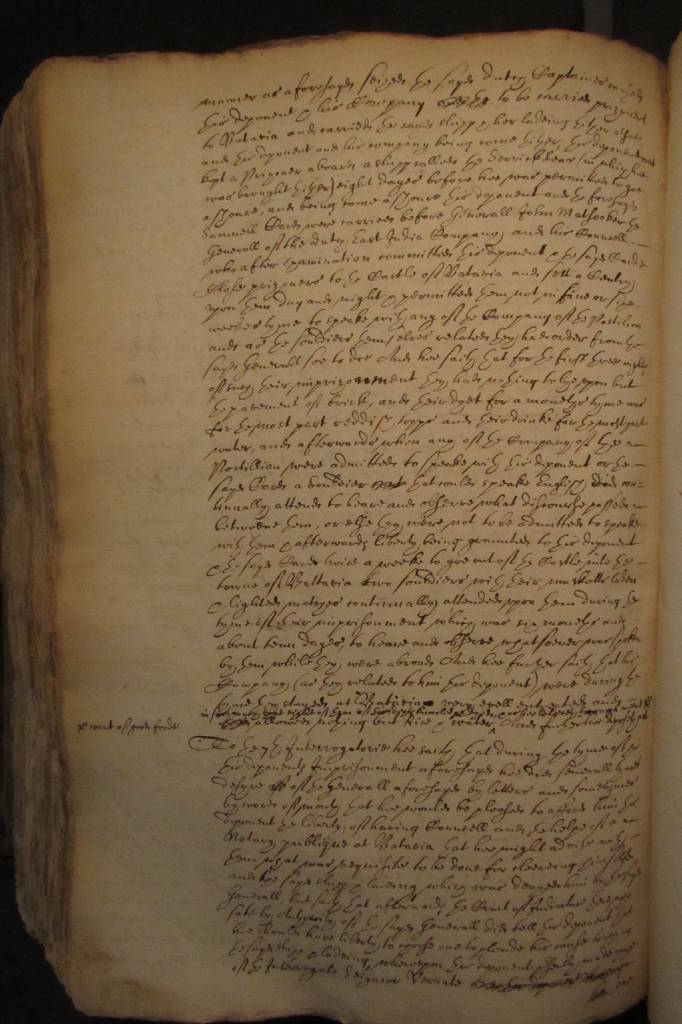 manner as aforesayd seized the sayd dutch Captaines caused
this deponent & his Company to be carried prizoners
to Batavia and carried the sayd shipp & her ladeing thither alsoe
and this deponent and his company being come thither, this deponent was
kept a Prizoner aboard a shipp called the (in which hee
was brought thither) eight dayes before hee was permitted to goe
a shoare, and being come a shoare this deponent and the foresayd
Samuell were carried before Generall John Matsooker the
Generall of the dutch East India Company, and his Councell
who after examination committed this deponent & the sayd
close prizoners to the Castle of Batavia and sett a Centry
upon them day and night & permitted them not in five or six
weekes tyme to speake with any of the Company of the Postilion
and as the souldiers themselves related they had order from the
sayd Generall soe to doe And hee saith that for the first three nights
of such their imprizonment they had nothing to lye upon but
the pavement of brick, and their dyet for a moneths tyme was
for the most part reddish topps and their drinke for the most part
water, and afterwards when any of the Company of the
Postillian were admitted to speake with this deponent or the
sayd a Souldier that could speake English did con=
tinually attend to heare and observe what discourse passed
betweene them, or else they were not to be admitted to speake
with them & afterwards liberty being graunted to this deponent
& the sayd twice a weeke to goe out of the Castle into the
towne of Battavia two souldiers with their musketts laden
& lighted matches continually attended upon them during the
tyme of their imprisonment which was six moneths and
about tenn dayes, to heare and observe whatsoever was spoken
by them while they were abroad And hee further saith that his
Company (as they related to him this deponent) were during the
tyme they stayed at Batavia very evill entreated and
allowed nothing but Rice & water, And further deposeth not
x want of good foode
To the Interrogatorie hee saith that during the tyme of
this deponents Imprisonment aforesayd hee did severall tymes
desyre of the Generall aforesayd by letters and sometymes
by word of mouth that hee would be pleased to afford him this
deponent the liberty of having Councell and the helpe of a
Notary publique at Batavia that hee might advise with
them what was requisite to be done for cleereing himselfe
and the sayd shipp & ladeing which was denyed him by the sayd
Generall but saith that afterwards the Court of Judicature
by Authority of the sayd Generall did tell this deponent that
hee should have liberty to choose one to pleade his cause touching
the sayd shipp & ladeing, whereupon this deponent
of the Interrogate Seignior